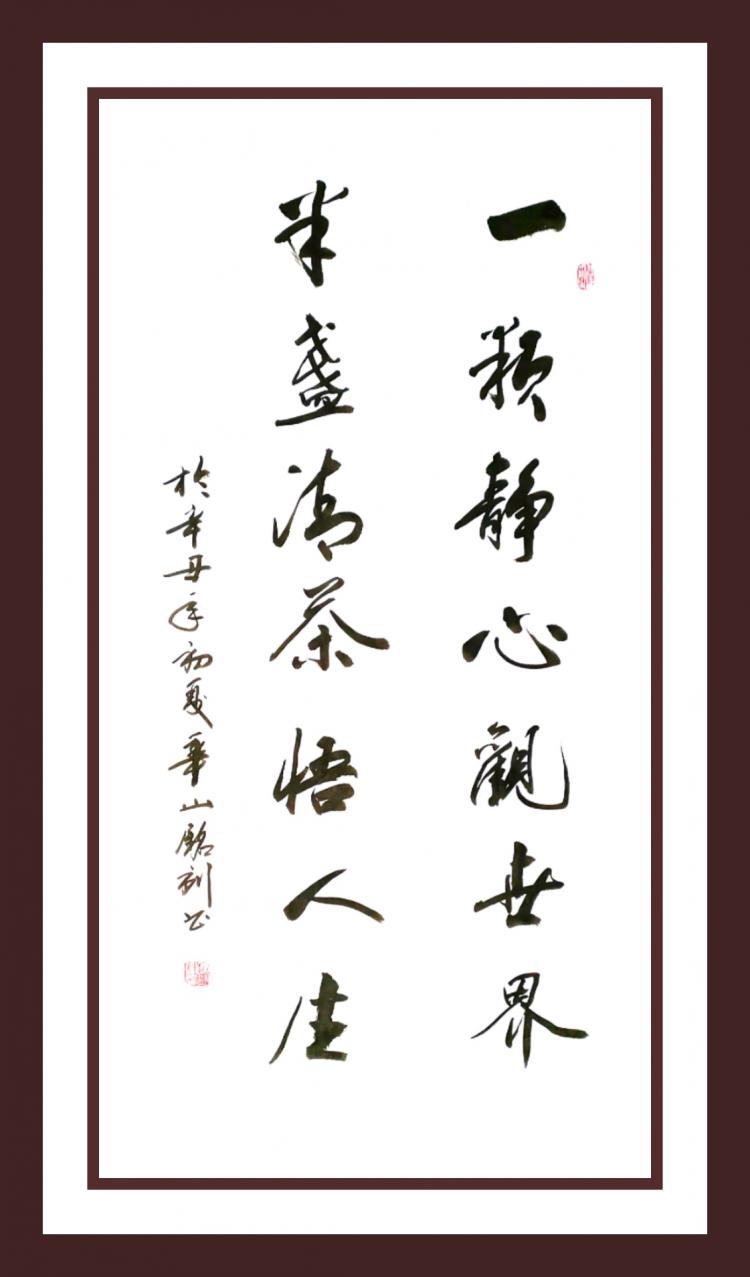 一颗静心觀世界
半盏清茶悟人生
於辛丑年初夏華山銘利书